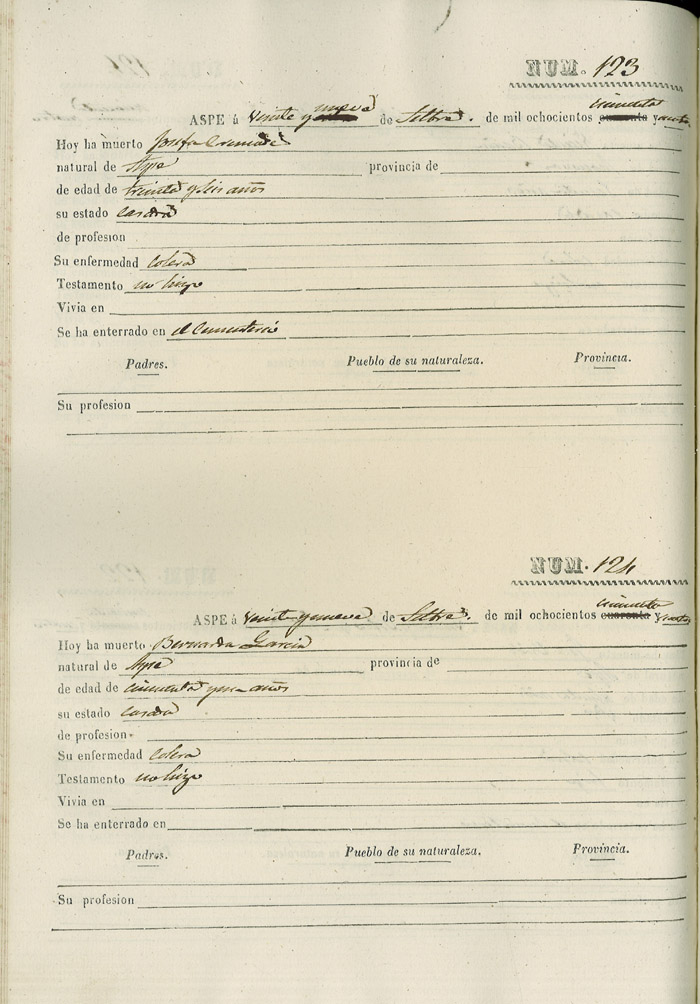 NUM. 123
ASPE á veinte y nueve de Setbre. de mil ochocientos cincuenta y cuatro
Hoy ha muerto Josefa Cremade
natural de Aspe provincia de
de edad de treinta y seis años
su estado casada
de profesion
Su enfermedad colera
Testamento no hizo
Vivia en
Se ha enterrado en el Cementerio
Padres. Pueblo de su naturaleza. Provincia.
Su profesion
NUM. 124
ASPE á veinte y nueve de Setbre. de mil ochocientos cincuenta y cuatro
Hoy ha muerto Bernarda Garcia
natural de Aspe provincia de
de edad de cincuenta y un años
su estado casada
de profesion
Su enfermedad colera
Testamento no hizo
Vivia en
Se ha enterrado en
Padres. Pueblo de su naturaleza. Provincia.
Su profesion